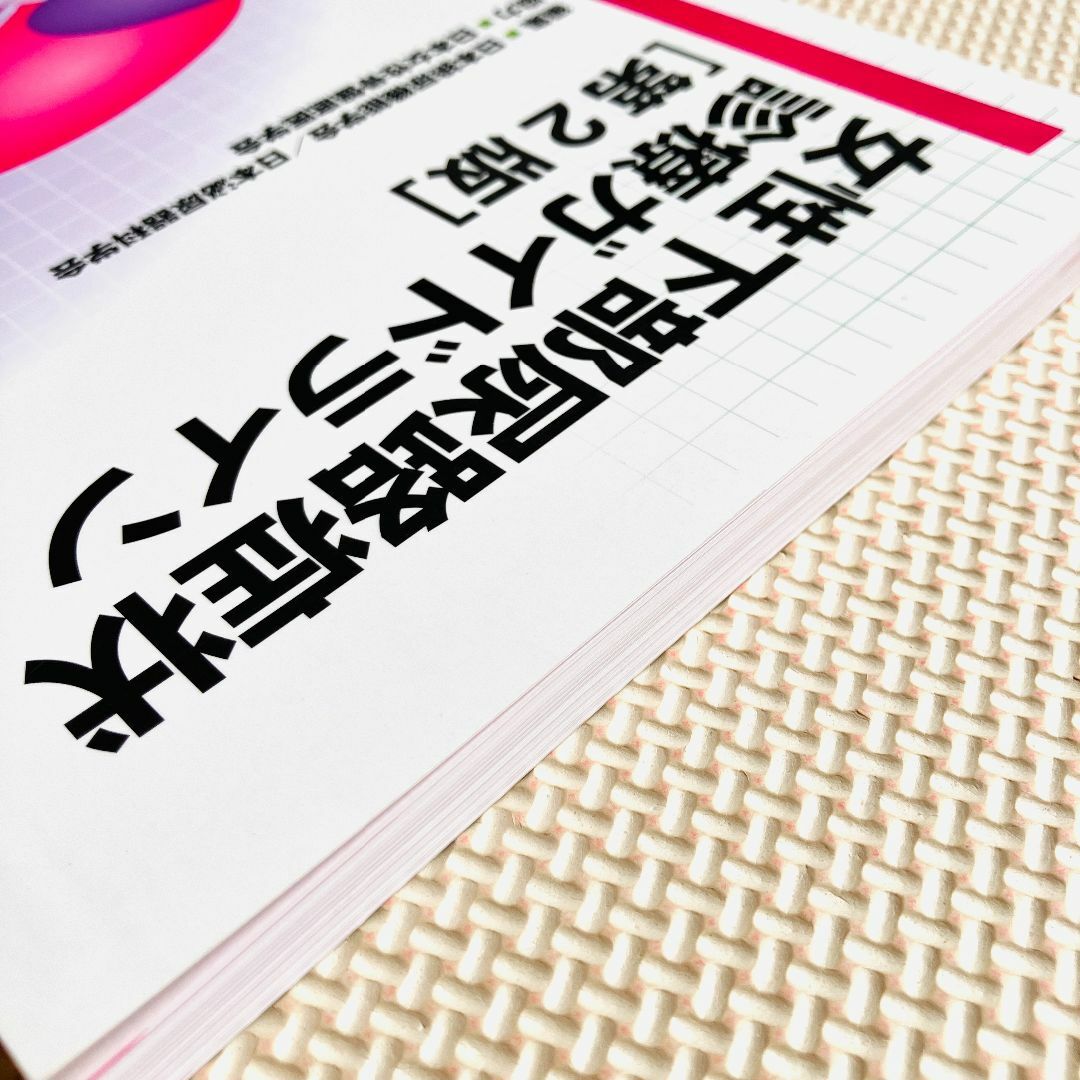 女性下部尿路症状
診療ガイドライン
[第2版]
編集 ● 日本排尿機能学会/日本泌尿器科学会
協力 ● 日本女性骨盤底医学会